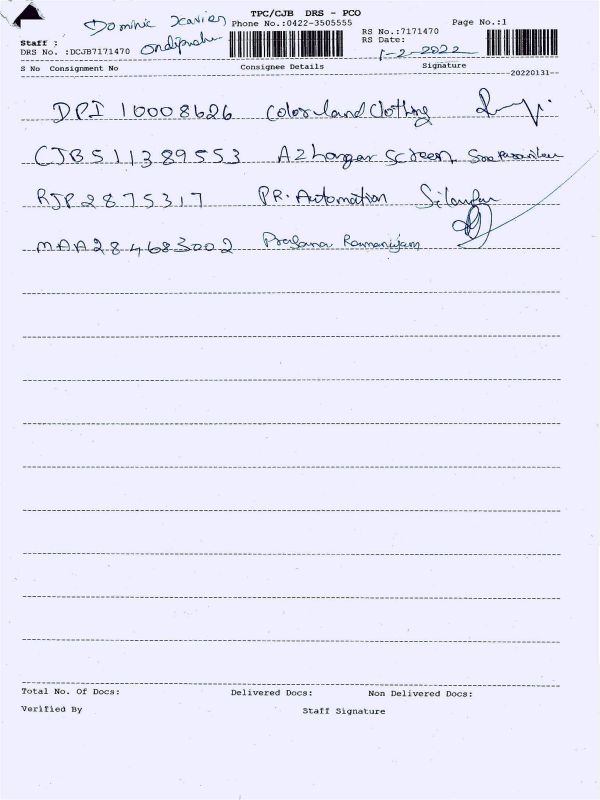 TPC/CJB DRS - PCO
Dominic Xavier Phone No.:0422-3505555 Page No.:1
RS No.:7171470
Staff : RS Date:
DRS No. :DCJB7171470 1-2-2022
S No Consignment No Consignee Details Signature
--20220131--
DPI 10008626 Colorland Clothing
CJB511389553 Azhagar Screen
RJP2875317 PR. Automation
MAA284683002 Prasana Ramanujam
Total No. Of Docs: Delivered Docs: Non Delivered Docs:
Verified By Staff Signature